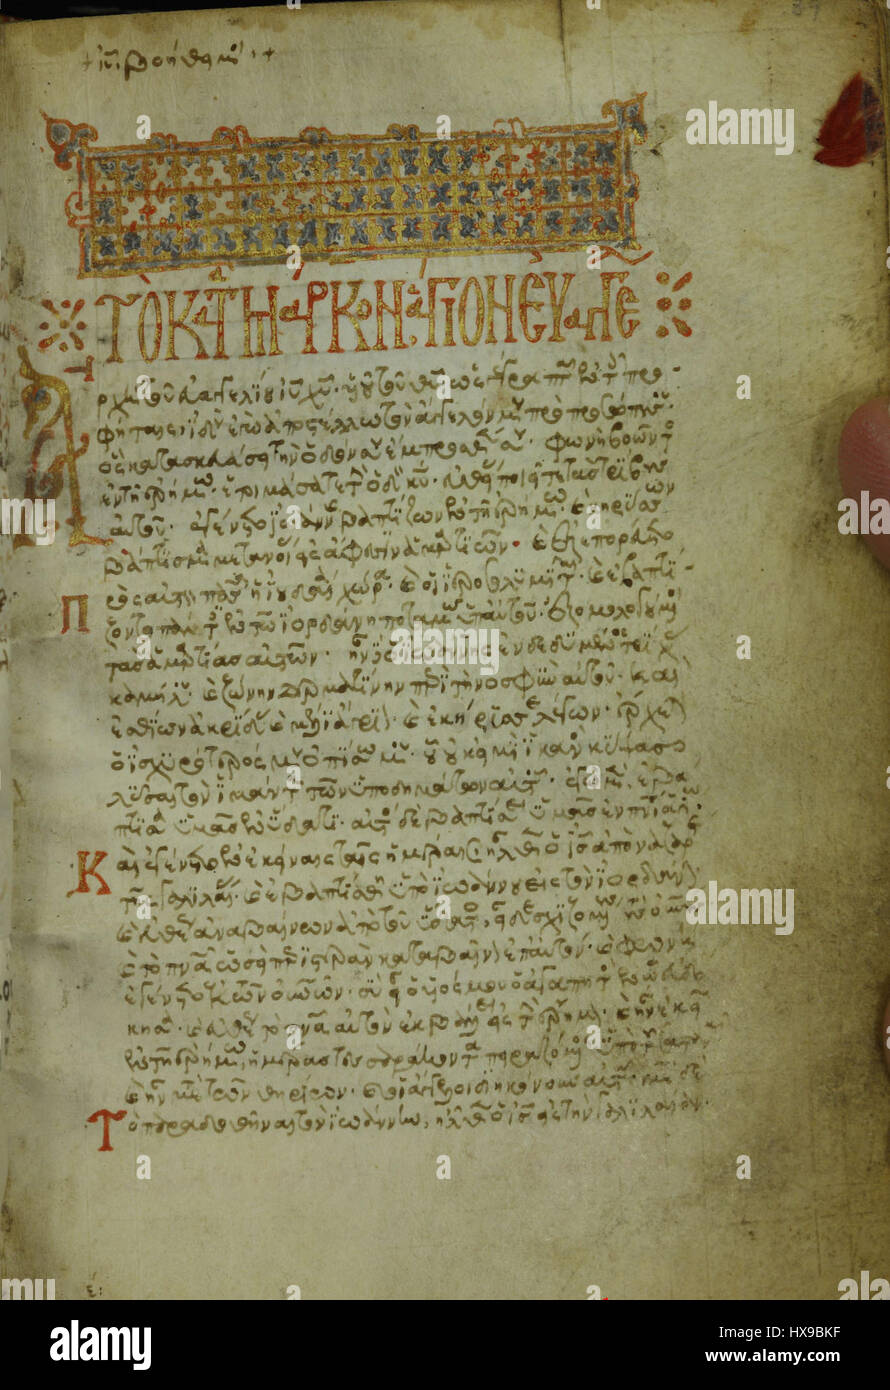 + ἰῦ βοήθη μοι +
ΤΟ ΚΑΤΑ ΜΑΡΚΟΝ ΑΓΙΟΝ ΕΥΑΓΓΕ
Ἀρχὴ τοῦ εὐαγγελίου ἰῦ χῦ υἱοῦ τοῦ θῦ ὡς γέγραπται ἐν τοῖς προ-
φήταις ἰδοὺ ἐγὼ ἀποστέλλω τὸν ἄγγελόν μου πρὸ προσώπου σου
ὃς κατασκευάσει τὴν ὁδόν σου ἔμπροσθέν σου · φωνὴ βοῶντος
ἐν τῇ ἐρήμῳ · ἑτοιμάσατε τὴν ὁδὸν κῦ · εὐθείας ποιεῖτε τὰς τρίβους
αὐτοῦ · ἐγένετο ἰωάννης βαπτίζων ἐν τῇ ἐρήμῳ · καὶ κηρύσσων
βάπτισμα μετανοίας εἰς ἄφεσιν ἁμαρτιῶν · καὶ ἐξεπορεύετο
πρὸς αὐτὸν πᾶσα ἡ ἰουδαία χώρα · καὶ οἱ ἱεροσολυμῖται · καὶ ἐβαπτί-
ζοντο πάντες ἐν τῷ ἰορδάνη ποταμῷ ὑπ' αὐτοῦ · ἐξομολογούμενοι
τὰς ἁμαρτίας αὐτῶν · ἦν δὲ ὁ ἰωάννης ἐνδεδυμένος τρίχας
καμήλου · καὶ ζώνην δερματίνην περὶ τὴν ὀσφὺν αὐτοῦ · καὶ
ἐσθίων ἀκρίδας καὶ μέλι ἄγριον · καὶ ἐκήρυσσε λέγων · ἔρχεται
ὁ ἰσχυρότερός μου ὀπίσω μου · οὗ οὐκ εἰμὶ ἱκανὸς κύψας
λῦσαι τὸν ἱμάντα τῶν ὑποδημάτων αὐτοῦ · ἐγὼ μὲν ἐβά
πτισα ὑμᾶς ἐν ὕδατι · αὐτὸς δὲ βαπτίσει ὑμᾶς ἐν πνι ἁγίῳ ·
Καὶ ἐγένετο ἐν ἐκείναις ταῖς ἡμέραις ἦλθεν ὁ ἰς ἀπὸ ναζαρὲτ
τῆς γαλιλαίας · καὶ ἐβαπτίσθη ὑπὸ ἰωάννου εἰς τὸν ἰορδάνην
καὶ εὐθέως ἀναβαίνων ἀπὸ τοῦ ὕδατος, εἶδε σχιζομένους τοὺς οὐνοὺς
καὶ τὸ πνᾶ ὡσεὶ περιστερὰν καταβαῖνον ἐπ' αὐτόν · καὶ φωνὴ
ἐγένετο ἐκ τῶν οὐνῶν · σὺ εἶ ὁ υἱός μου ὁ ἀγαπητὸς ἐν ᾧ εὐδό
κησα · καὶ εὐθὺς τὸ πνᾶ αὐτὸν ἐκβάλλει εἰς τὴν ἔρημον · καὶ ἦν ἐκεῖ
ἐν τῇ ἐρήμῳ ἡμέρας τεσσαράκοντα πειραζόμενος ὑπὸ τοῦ σατανᾶ
καὶ ἦν μετὰ τῶν θηρίων · καὶ οἱ ἄγγελοι διηκόνουν αὐτῷ · μετὰ δὲ
Τὸ παραδοθῆναι τὸν ἰωάννην, ἦλθεν ὁ ἰς εἰς τὴν γαλιλαίαν ·
alamy
Image ID: HX9BKF
www.alamy.com